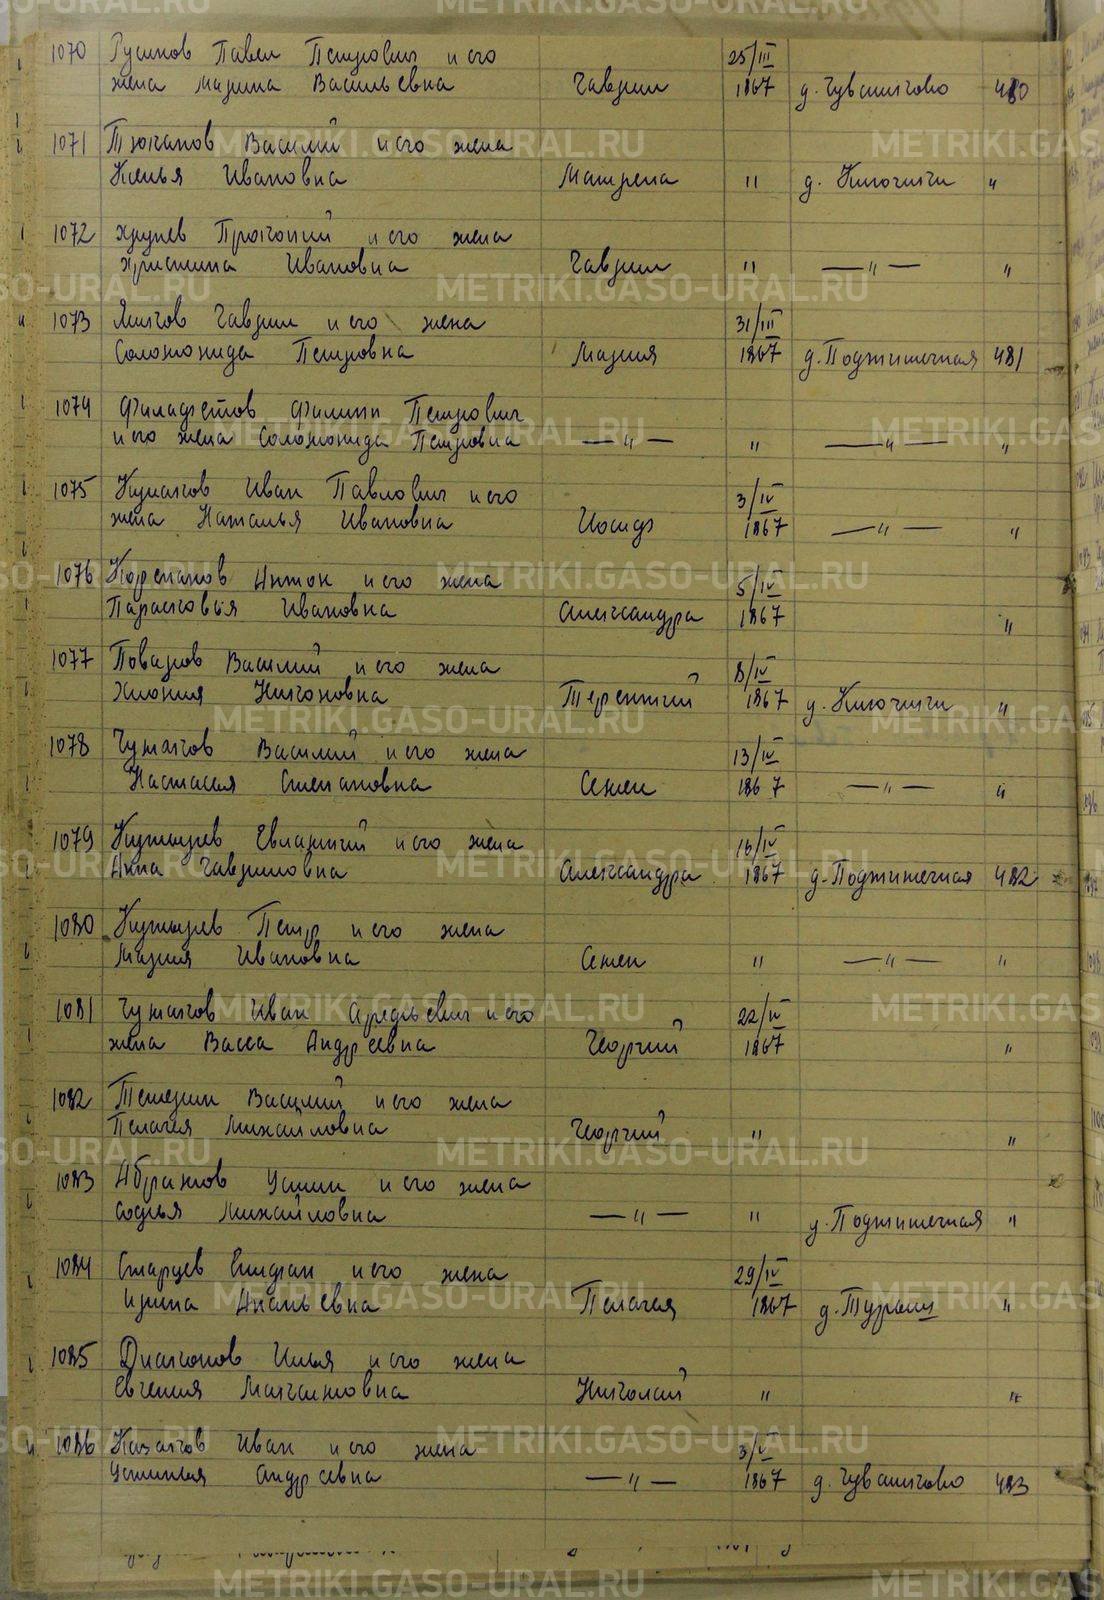 1070 Русинов Павел Петрович и его
жена Марина Васильевна Гаврил 25/III 1867 д. Чувашково 480
1071 Тюканов Василий и его жена
Ксенья Ивановна Матрена " д. Ключики "
1072 Хрулев Прокопий и его жена
Христина Ивановна Гаврил " — " — "
1073 Янков Гаврил и его жена
Соломонида Петровна Мария 31/III 1867 д. Поджитечная 481
1074 Филафетов Филипп Петрович
и его жена Соломонида Петровна — " — " — " — "
1075 Кулаков Иван Павлович и его
жена Наталья Ивановна Иосиф 3/IV 1867 — " — "
1076 Корепанов Антон и его жена
Парасковья Ивановна Александра 5/IV 1867 "
1077 Поваров Василий и его жена
Хиония Никоновна Терентий 8/IV 1867 д. Ключики "
1078 Чумаков Василий и его жена
Настасея Степановна Семен 13/IV 1867 — " — "
1079 Кутырев Евлампий и его жена
Анна Гавриловна Александра 16/IV 1867 д. Поджитечная 482
1080 Кутырев Петр и его жена
Мария Ивановна Семен " — " — "
1081 Чумаков Иван Арефьевич и его
жена Васса Андреевна Георгий 22/IV 1867 "
1082 Тетерин Василий и его жена
Пелагея Михайловна Георгий " "
1083 Абрамов Устин и его жена
Софья Михайловна — " — " д. Поджитечная "
1084 Старцев Епифан и его жена
Ирина Ананьевна Пелагея 29/IV 1867 д. Турыш "
1085 Дьяконов Илья и его жена
Евгения Максимовна Николай " "
1086 Казаков Иван и его жена
Устинья Андреевна — " — 3/V 1867 д. Чувашково 483
METRIKI.GASO-URAL.RU